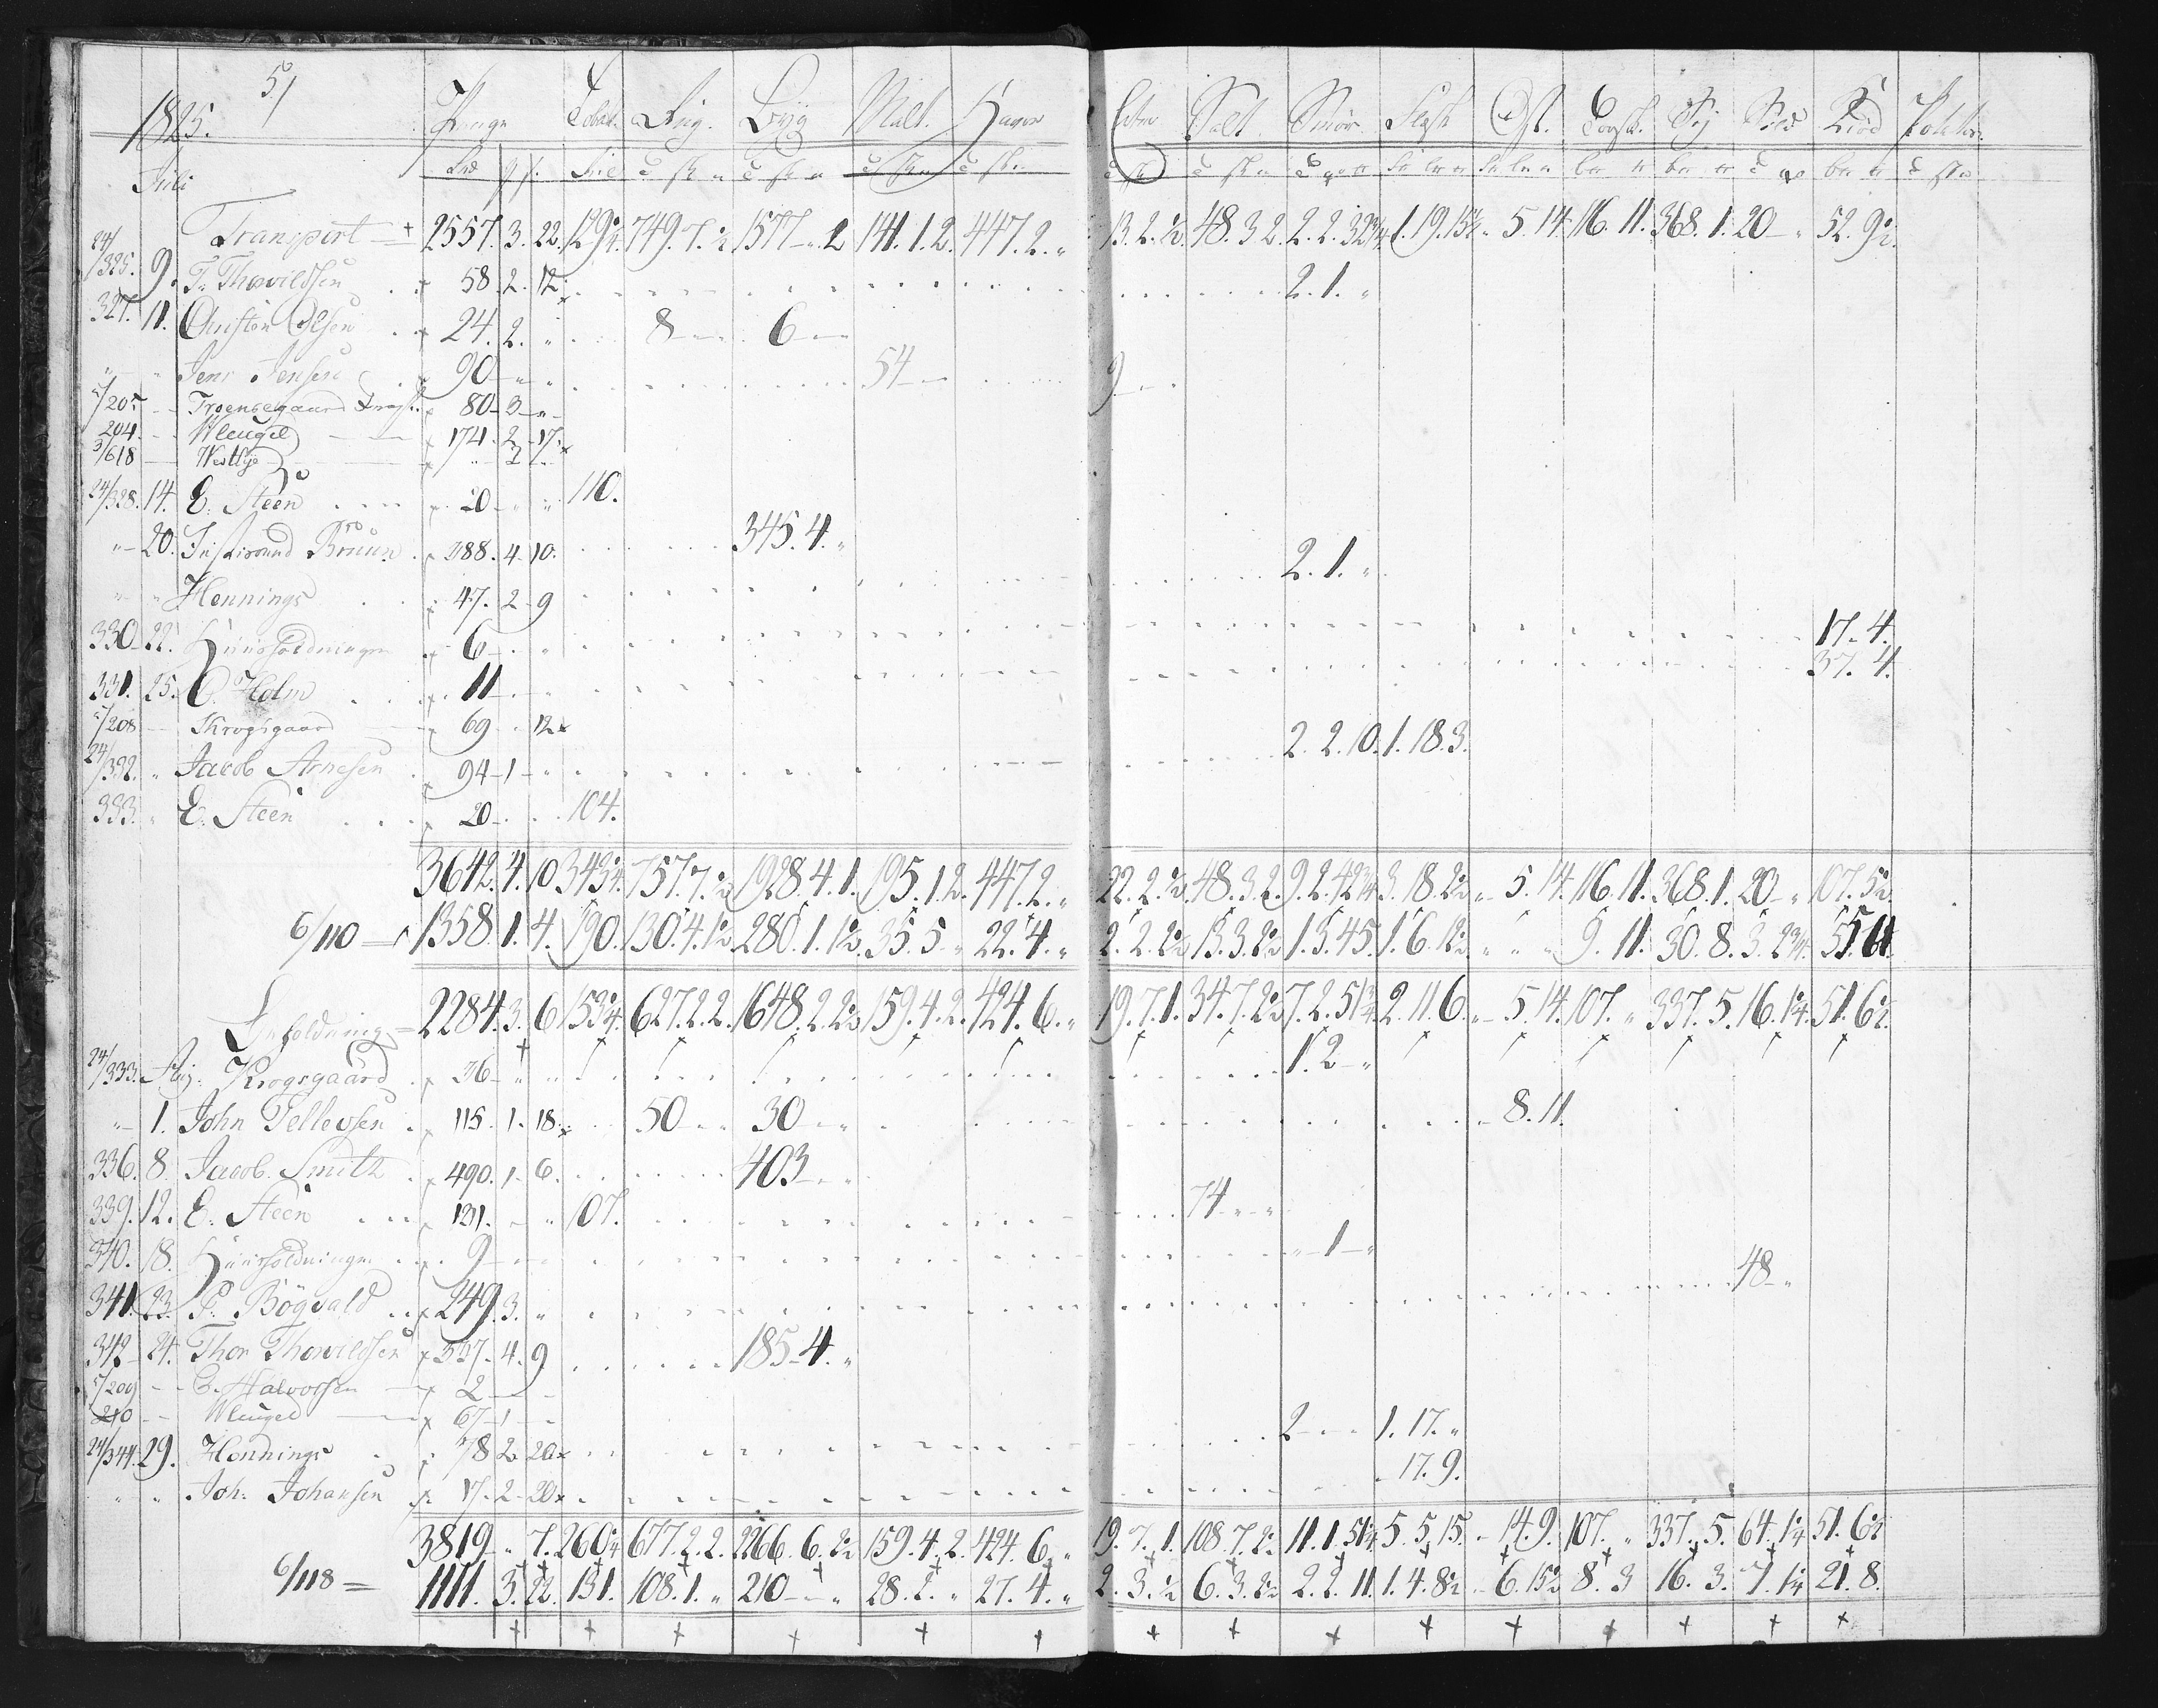 51
1825. Penge Tobak Rug. Byg Malt. Havre Erter Salt Smör Flesk Ost. Torsk. Sej Sild Kiöd Poteter
Juli
Transport 2557. 3. 22. 129¾. 749. 7. ½ 1577 – „ 2 141. 1. 2. 447. 2. „ 13. 2. ½. 48. 3 2. 2. 2. 32¾. 1. 19. 15½. „ 5. 14. 116. 11. 368. 1. 20 – „ 52. 9½.
24/325. 9. T. Thorvildsen 58. 2. 12. 2. 1. „
327. 11. Christen Olsen 24. 2. „ 8 – 6 –
„ „ Jens Jensen 90 – „ „ 54 – 9 –
5/205 – Troensegaard 80 – 3 – „
204. – Wleugel 174. 2 – 17.
3/618 – Westlye „ – 2
24/328. 14. E. Steen 20 – „ „ 110.
„ – 20. Justisraad Bruun 388. 4. 10. 345. 4. „
„ „ Hennings 47. 2 – 9 2. 1. „
330. 22. Huusholdningen 6 – „ 17. 4.
331. 25. C. Holm 11 – „ 37. 4.
5/208 – Krogsgaard 69 – „ 12
24/332. „ Jacob Arnesen 94 – 1 – „ 2. 2. 10. 1. 18. 3.
333. „ E. Steen 20 – „ 104.
3642. 4. 10 343¾. 757. 7. ½ 1928. 4. 1. 195. 1. 2. 447. 2. „ 22. 2. ½. 48. 3. 2. 9. 2. 42¾ 3. 18. 2½ „ 5. 14. 116. 11. 368. 1. 20 – „ 107. 5½
6/110 = 1358. 1. 4. 190. 130. 4. 1½ 280. 1. 1½ 35. 5 „ 22. 4. „ 2. 2. 2½ 13. 3. 2½ 1. 3. 45. 1. 6. 12½ „ „ „ 9. 11. 30. 8. 3. 2¾. 55. 11.
Beholdning = 2284. 3. 6 153¾. 627. 2. 2. 1648. 2. 2½ 159. 4. 2. 424. 6. „ 19. 7. 1. 34. 7. 2½ 7. 2. 51¾. 2. 11. 6. „ 5. 14. 107. „ 337. 5. 16. 1¼. 51. 6½.
24/333. Aug. Krogsgaard 36 – „ „ 1. 2 – „
„ – 1. John Tellevsen 115. 1. 18. 50 – 30 – 8. 11.
336. 8. Jacob Smith 490. 1. 6. 403 –
339. 12. E. Steen 131. – „ 107. 74 –
340. 18. Huusholdningen 9 – „ – 1 – „
341. 23. P. Bögvald 249. 3. „ 48 – „
342 – 24. Thor Thorvildsen 537. 4. 9 185 – 4. „
5/209 – C. Halvorsen 2 –
210 – Wleugel 67 – 1 –
24/344. 29. Hennings 78 2 20 2 – 1. 17. „
„ „ Joh. Johansen 17 – 2 – 20 „ 17. 9.
3819 – „ 7. 260¾ 677. 2. 2. 2266. 6. 2½ 159. 4. 2. 424. 6. „ 19. 7. 1. 108. 7. 2½ 11. 1. 51¾ 5. 5. 15. – 14. 9. 107. „ 337. 5. 64. 1¼ 51. 6½
6/118 = 1111. 3. 22. 131. 108. 1. „ 210 – „ 28. 2. „ 27. 4. „ 2. 3. ½ 6. 3. 2½ 2. 2. 11. 1. 4. 8½ – 6. 15½ 8. 3 16. 3. 7. 1¼ 21. 8.